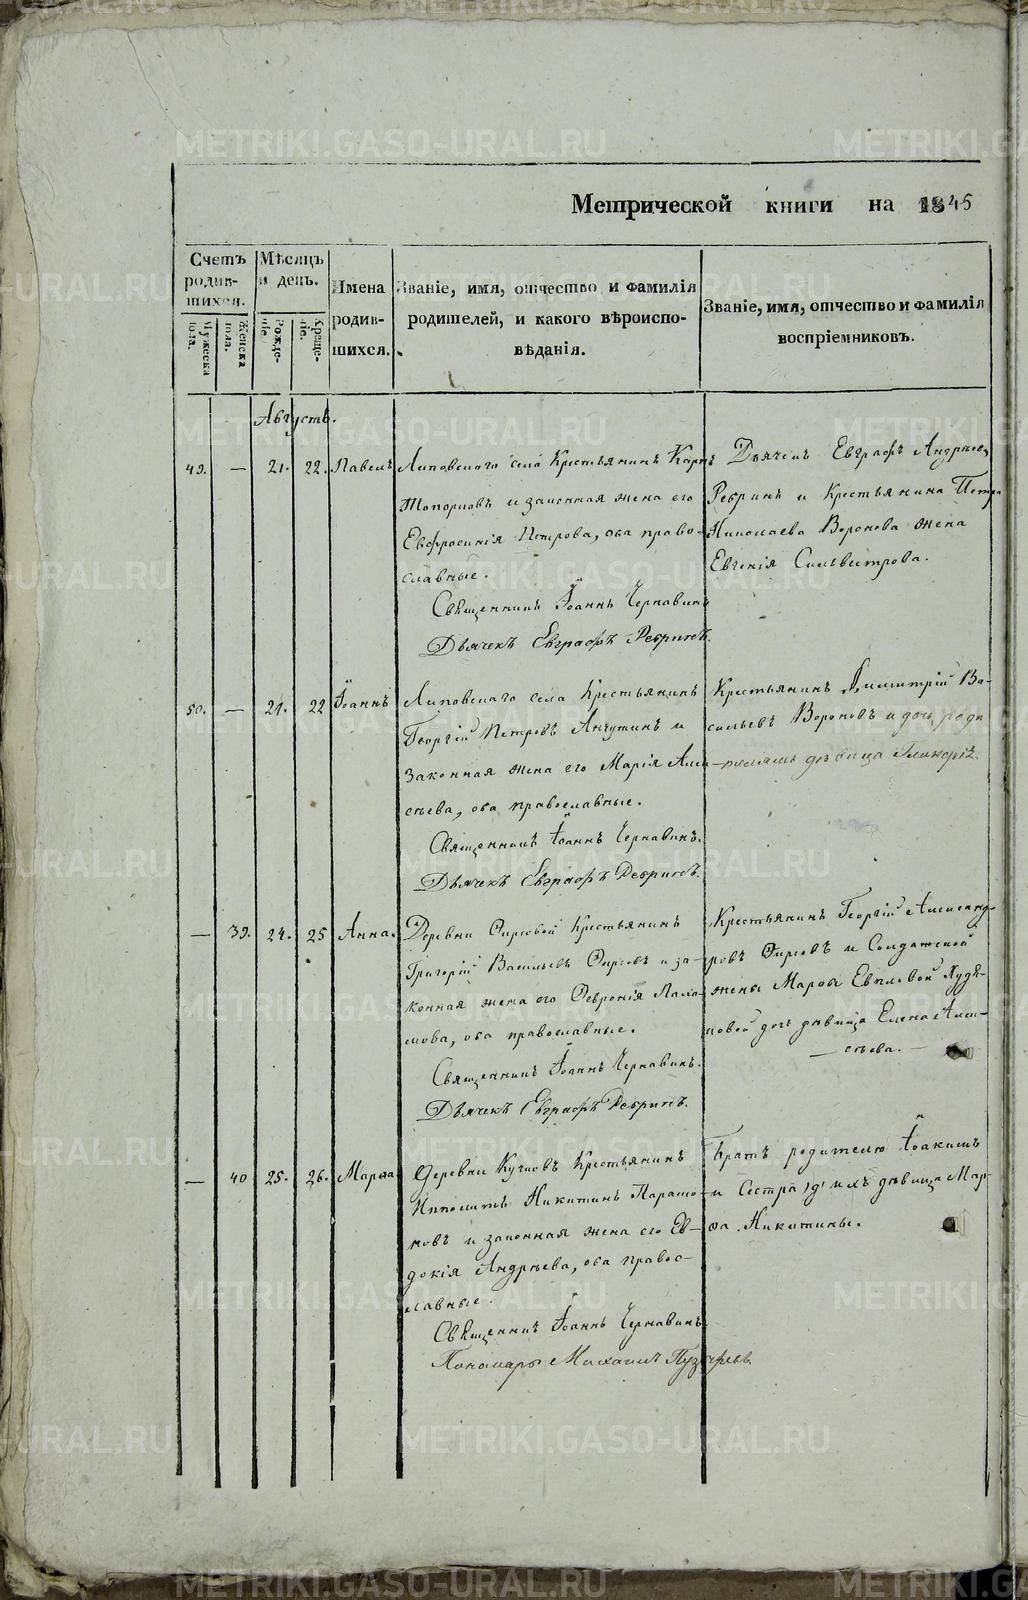 Метрической книги на 1845
Счетъ родив-шихся.
Мужеска пола.
Женска пола.
Мѣсяцъ и день.
Рожде-ніе.
Креще-ніе.
Имена родив-шихся.
Званіе, имя, отчество и фамилія
родителей, и какого вѣроиспо-
вѣданія.
Званіе, имя, отчество и фамилія
воспріемниковъ.
Августъ.
49. — 21. 22. Павелъ
Липовскаго села Крестьянинъ Карпъ
Топорковъ и законная жена его
Евфросинія Петрова, оба право-
славные.
Священникъ Іоаннъ Чернавинъ
Дьячекъ Евграфъ Ребринъ.
Дьячекъ Евграфъ Андреевъ
Ребринъ и Крестьянина Петра
Николаева Воронова жена
Евгенія Сильвестрова.
50. — 21. 22 Іоаннъ
Липовскаго села Крестьянинъ
Георгій Петровъ Анчутинъ и
законная жена его Марія Алек-
сѣева, оба православные.
Священникъ Іоаннъ Чернавинъ.
Дьячекъ Евграфъ Ребринъ.
Крестьянинъ Димитрій Ва-
сильевъ Вороновъ и дочь роди
телямъ дѣвица Гликерія.
— 39. 24. 25 Анна.
Деревни Фирсовой Крестьянинъ
Григорій Васильевъ Фирсовъ и за-
конная жена его Февронія Пахо-
мова, оба православные.
Священникъ Іоаннъ Чернавинъ.
Дьячекъ Евграфъ Ребринъ.
Крестьянинъ Георгій Александ-
ровъ Фирсовъ и Солдатской
жены Марфы Евпловой Худя-
ковой дочь дѣвица Елена Алек-
— сѣева. —
— 40 25. 26. Марфа
Деревни Крестьянинъ
Ипполитъ Никитинъ Парамо-
новъ и законная жена его Ев-
докія Андреева, оба правос-
лавные.
Священникъ Іоаннъ Чернавинъ
Пономарь Михаилъ Пузыревъ.
Братъ родителю Іоакимъ
и Сестра дѣвица Мар-
фа Никитины.
METRIKI.GASO-URAL.RU